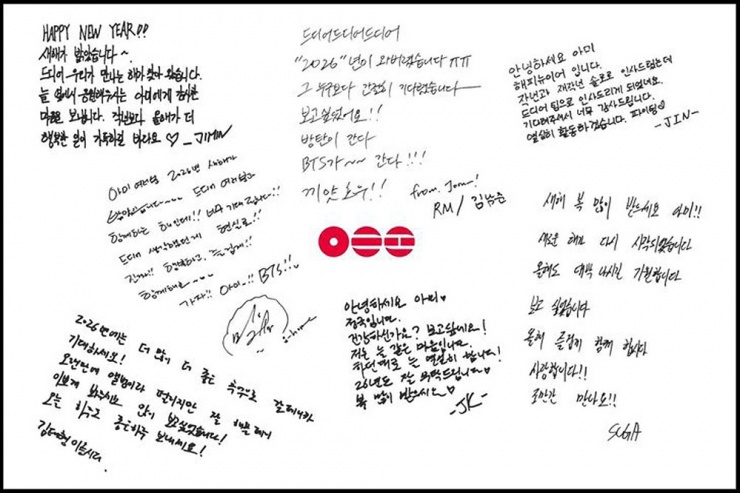 HAPPY NEW YEAR!!
새해가 밝았습니다~.
드디어 우리가 만나는 해가 찾아 왔습니다.
늘 옆에서 응원해주시는 아미에게 감사한
마음 보냅니다. 작년보다 올해가 더
행복한 일이 가득하길 바라요 ♡ _JIMIN
드디어드디어드디어
"2026"년이 와버렸습니다 ㅠㅠ
그 누구보다 간절히 기다렸습니다
보고싶었어요!!
방탄이 간다
BTS가~~ 간다!!!
끼얏호우!!
from. Joon!
RM / 김남준
안녕하세요 아미
해피뉴이어 입니다.
작년과 재작년 솔로로 인사드렸는데
드디어 팀으로 인사드리게 되었네요.
기다려주셔서 너무 감사드립니다.
열심히 활동하겠습니다. 파이팅♡
-JIN-
아미 여러분 2026년 새해가
밝았습니다~~~ 드디어 여러분과
함께하는 해인데!! 너무 기대됩니다!!
드디어 생각했던게 현실로!!
진짜!! 행복하고, 즐겁게!!
함께해요~~~
가자!! 아미!! BTS!!
새해 복 많이 받으세요 아미!!
새로운 해가 다시 시작되었습니다
올해도 대박 나시길 기원합니다
보고 싶었습니다
올해 즐겁게 함께 합시다
사랑합니다!!
조만간 만나요!!
SUGA
2026년에는 더 많이 더 좋은 추억으로 갈테니까
기대하세요!
오랜만에 앨범이라 떨리지만 잘 해볼테니
이쁘게 봐주시요 많이 보고싶었습니다!
오늘 하루도 좋은하루 보내세요!
김태형 이올시다.
안녕하세요 아미♡
정국입니다.
건강하신가요? 보고싶네요!
저는 늘 같은 마음입니다.
하던대로 늘 열심히 합니다!
26년도 잘 부탁드립니다♡
복 많이 받으세요♡
-JK-